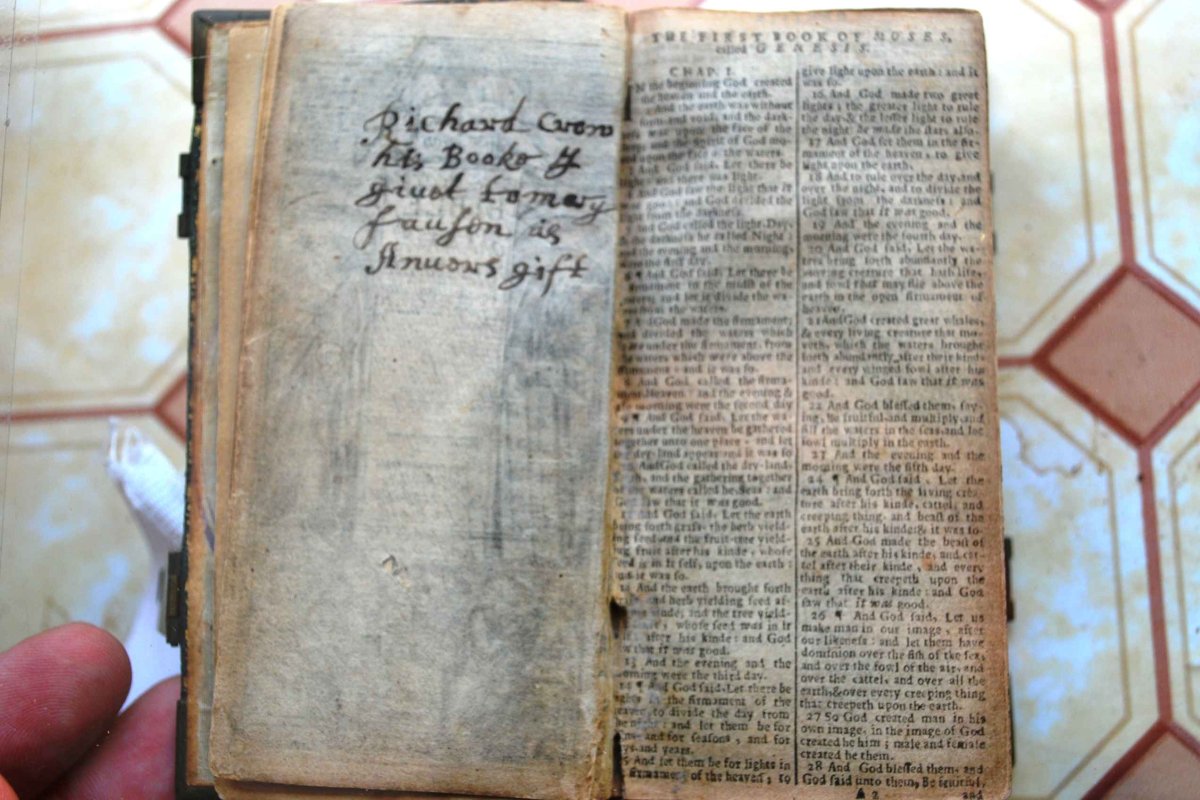 Richard Crow
his Booke
giuet to mary
ſauſon as
Anuors gift
THE FIRST BOOK OF MOSES,
called GENESIS.
CHAP. I.
IN the beginning God created
the heaven and the earth.
And the earth was without
form and void, and the dark-
was upon the face of the
and the Spirit of God mo-
upon the face the waters.
And God ſaid, Let there be
light and there was light.
And God ſaw the light that it
good: and God devided the
light from the darkneſs.
And God called the light, Day,
& the darkneſs he called Night:
and the evening and the morning
were the firſt day.
And God ſaid, Let there be
in the midſt of the
waters, and let it divide the wa-
from the waters.
And God made the firmament;
divided the waters which
under the firmament, from
waters which were above the
firmament: and it was ſo.
And God called the firma-
ment Heaven: and the evening &
morning were the ſecond day
¶ And God ſaid, Let the wa-
under the heaven be gathered
together unto one place, and let
dry-land appear: and it was ſo
And God called the dry-land,
and the gathering together
of the waters called he, Seas: and
God ſaw that it was good.
And God ſaid, Let the earth
bring forth graſs, the herb yield-
ing ſeed and the fruit-tree yield-
ing fruit after his kinde, whoſe
ſeed is in it ſelf, upon the earth:
and it was ſo.
And the earth brought forth
and herb yielding ſeed af-
kinde, and the tree yield-
whoſe ſeed was in it
after his kinde: and God
ſaw that it was good.
13 And the evening and the
morning were the third day.
14 ¶ And God ſaid, Let there be
lights in the firmament of the
heaven, to divide the day from
the night: and let them be for
and for ſeaſons, and for
days and years.
15 And let them be for lights in
firmament of the heaven, to
give light upon the earth: and it
was ſo.
16 And God made two great
lights; the greater light to rule
the day, & the leſſer light to rule
the night: he made the ſtars alſo.
17 And God ſet them in the fir-
mament of the heaven, to give
light upon the earth,
18 And to rule over the day, and
over the night, and to divide the
light from the darkneſs: and
God ſaw that it was good.
19 And the evening and the
morning were the fourth day.
20 And God ſaid, Let the wa-
ters bring forth abundantly the
moving creature that hath life,
and fowl that may flie above the
earth in the open firmament of
heaven.
21 And God created great whales,
& every living creature that mo-
veth, which the waters brought
forth abundantly after their kinde
and every winged fowl after his
kinde: and God ſaw that it was
good.
22 And God bleſſed them, ſay-
ing, Be fruitful, and multiply, and
fill the waters in the ſeas, and let
fowl multiply in the earth.
23 And the evening and the
morning were the fifth day.
24 ¶ And God ſaid, Let the
earth bring forth the living crea-
ture after his kinde, cattel, and
creeping thing, and beaſt of the
earth after his kinde: & it was ſo.
25 And God made the beaſt of
the earth after his kinde, and cat-
tel after their kinde, and every
thing that creepeth upon the
earth after his kinde: and God
ſaw that it was good.
26 ¶ And God ſaid, Let us
make man in our image, after
our likeneſs: and let them have
dominion over the fiſh of the ſea,
and over the fowl of the air, and
over the cattel, and over all the
earth, & over every creeping thing
that creepeth upon the earth.
27 So God created man in his
own image, in the image of God
created he him; male and female
created he them.
28 And God bleſſed them, and
God ſaid unto them, Be fruitful,
A 2 and